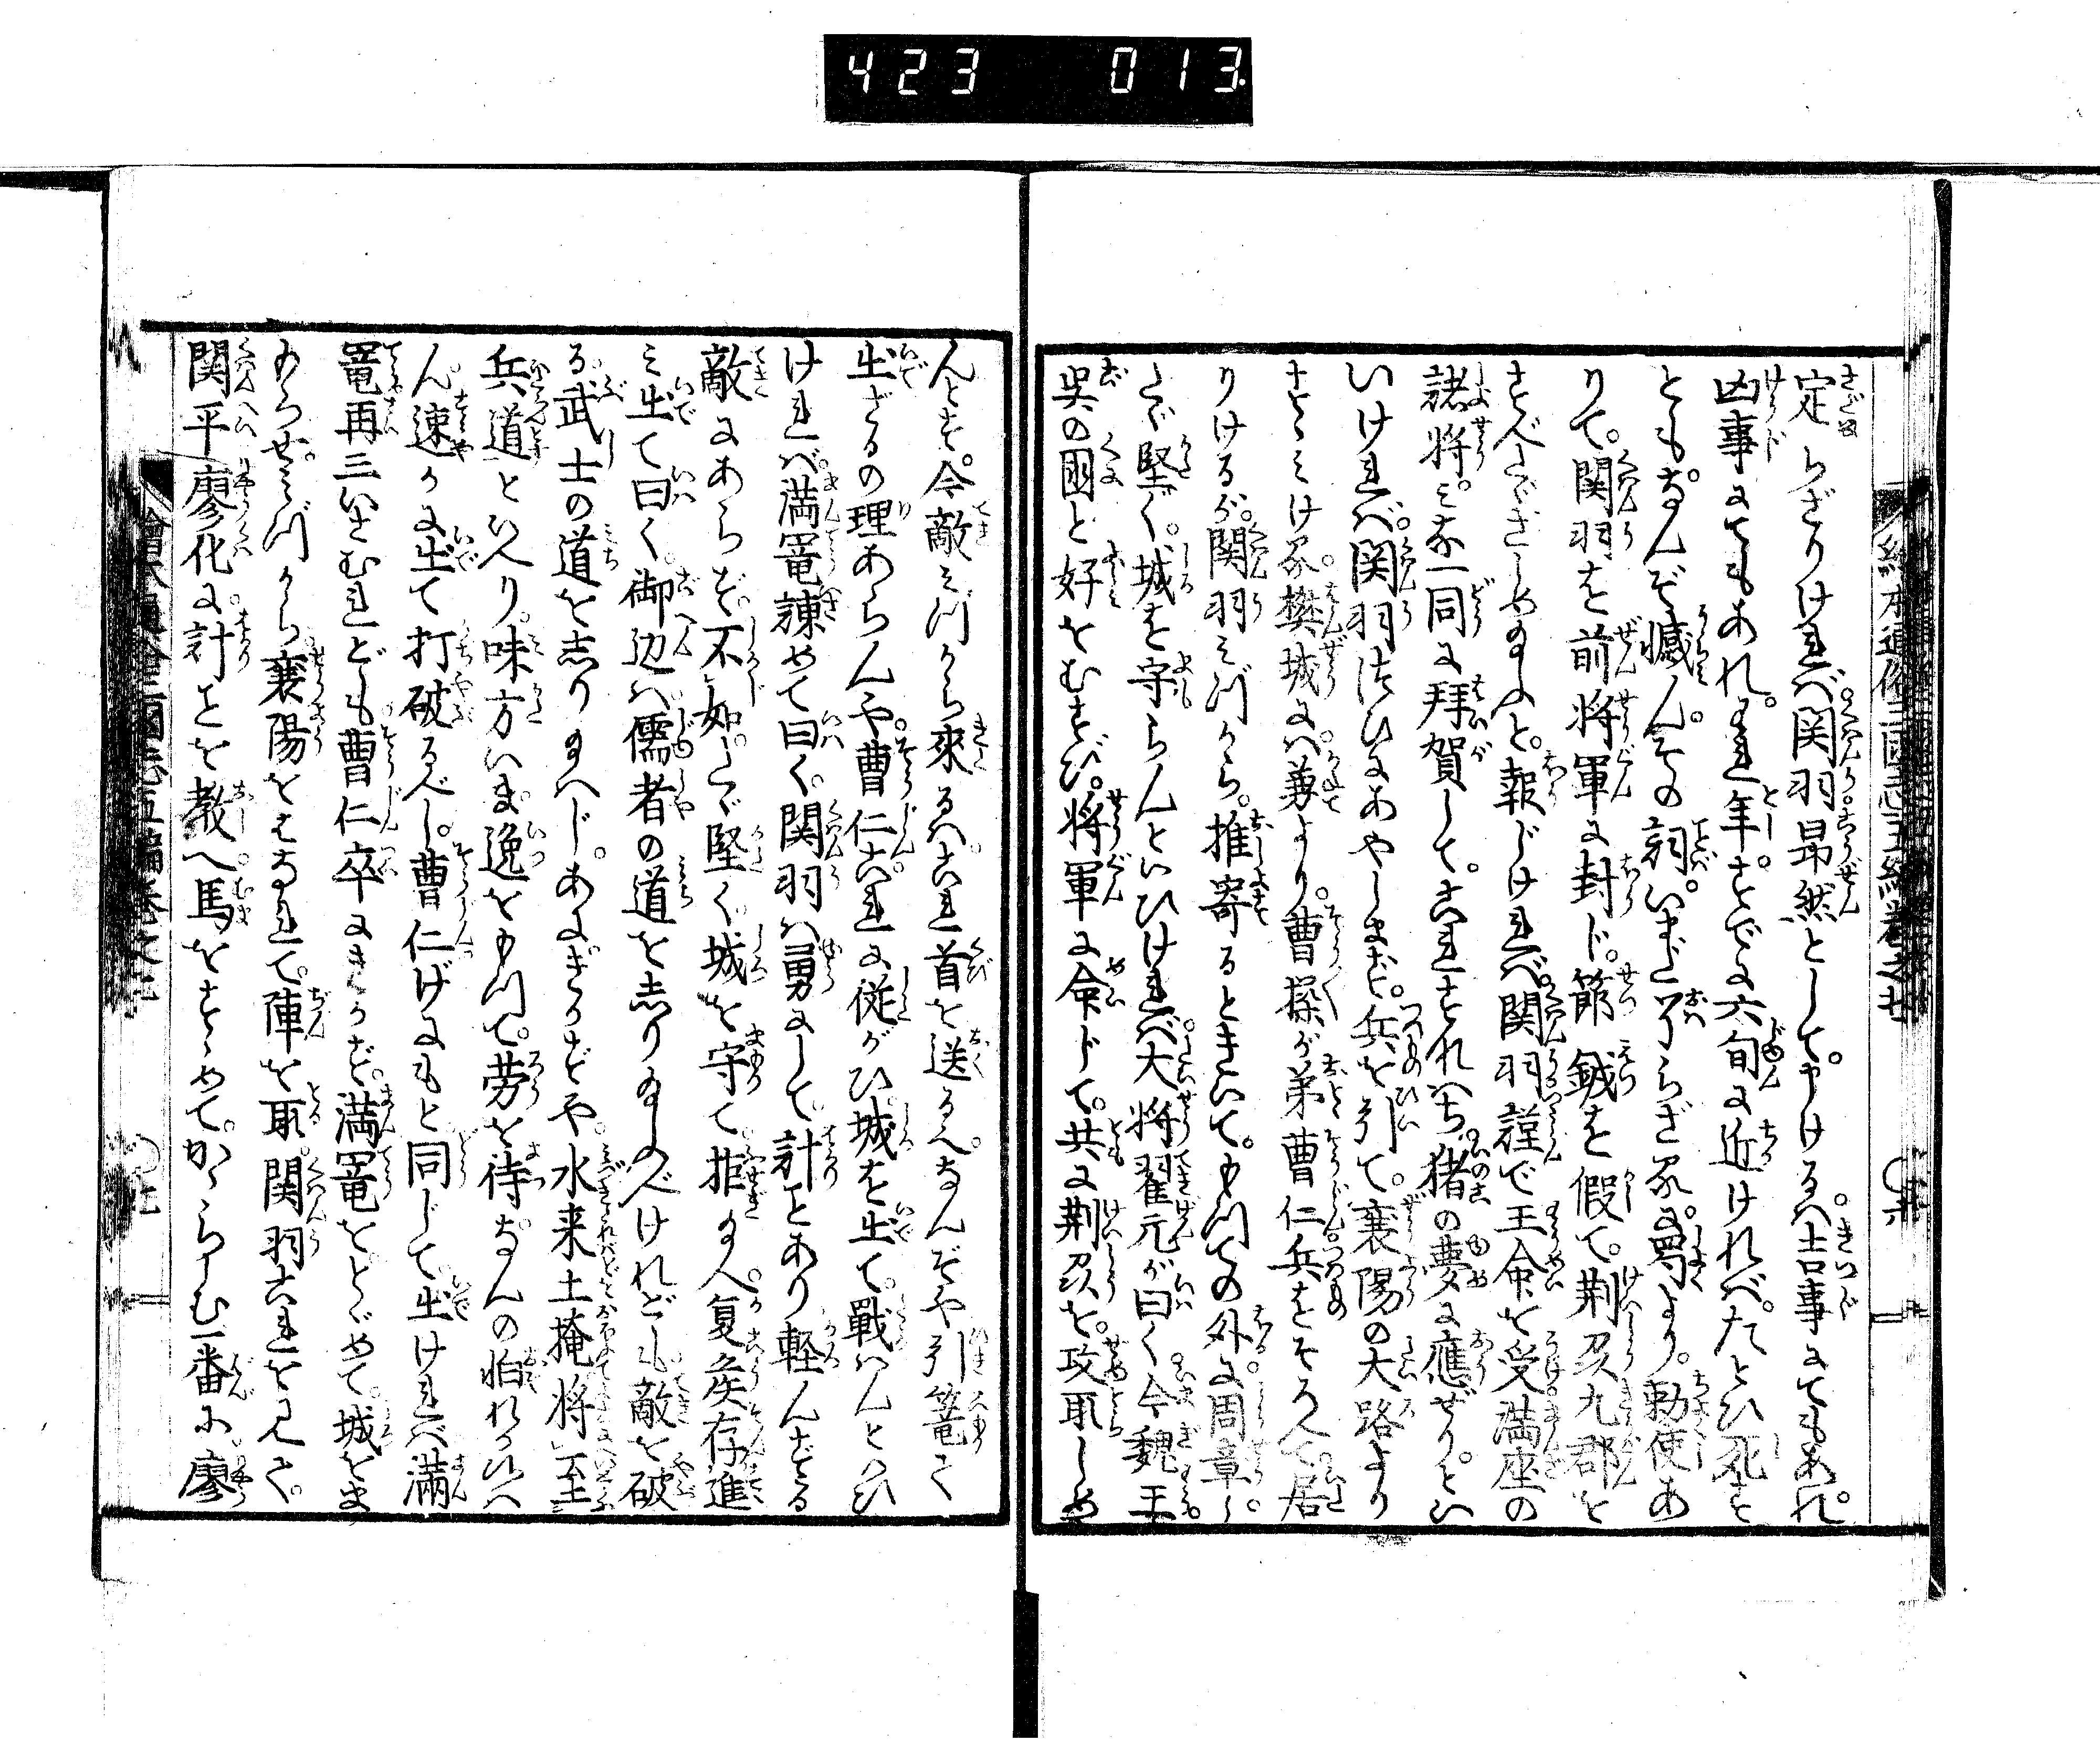 423 013
定らざりければ関羽昂然として。申けるハ吉事にてもあれ。
凶事にてもあれ。われ年すでに六旬に近ければ。たとひ死す
とも。なんぞ憾ん。その詞。いまだ畢らざるに蜀より。勅使あ
りて。関羽を前将軍に封じ。節鉞を假て。荊州九郡を
すべたゞさしめ給ふと。報じければ。関羽謹で王命を受満座の
諸将。みな一同に拝賀して。これすなハち猪の夢に應ぜり。とい
いければ。関羽
あやしまず。兵を引て。襄陽の大路より
すゝみける。樊城にハ兼より。曹操が弟曹仁兵をそろへて居
りけるが。関羽みづから。推寄るときいて。もつての外に周章し。
たゞ堅く。城を守らんといひければ。大将翟元が曰く今魏王
呉の国と好をむすび。将軍に命じて。共に荊州を。攻取しめ
んとす。今敵みづから来るハこれ首を送るなり。なんぞや引篭て
出ざるの理あらんや。曹仁これに従がひ。城を出て。戦ハんとひ
ければ。満寵諫めて曰く。関羽ハ勇にして。計ことあり軽んずる
敵にあらず。不如たゞ堅く。城を守て拒給へ。夏侯存進
み出て曰く。御辺ハ儒者の道を志り給ふべけれども敵を破
る武士の道を志り給ハじ。あにきかずや。水来土掩将至
兵迎といへり。味方いま逸をもつて。労を待なんの怕れか候ハ
ん。速かに出て打破るべし。曹仁げにもと同じて出ければ満
寵再三いさむれども曹仁卒にきかず。満寵をとゞめて。城をま
もらせ。みづから襄陽をはなれて。陣を取。関羽これを見て。
関平廖化に。計ことを教へ馬をすゝめて。かゝらしむ一番に。廖